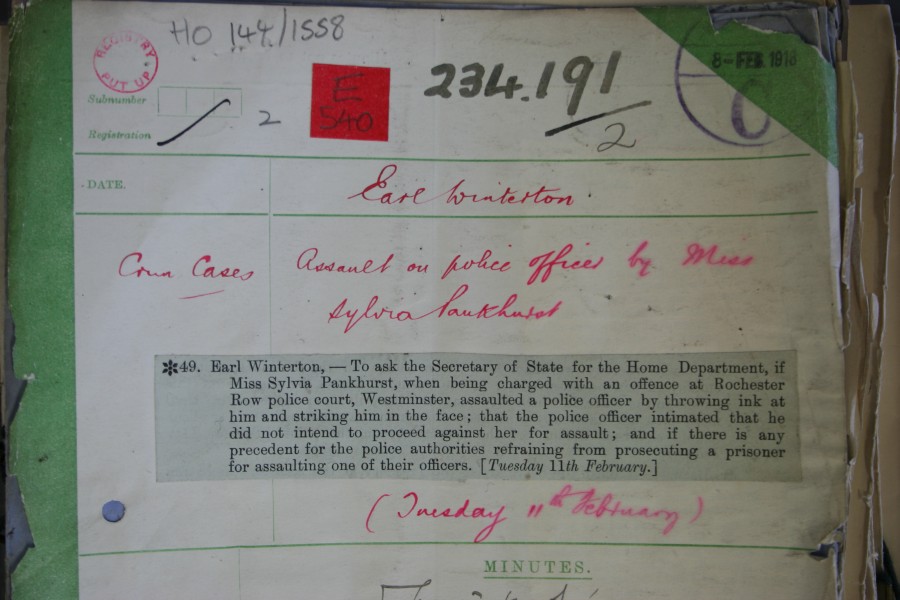 HO 144/1558
REGISTRY
PUT UP
8-FEB 1913
E
540
234.191
Subnumber
2
2
Registration
DATE.
Earl Winterton.
Crim Cases
Assault on police officer by Miss
Sylvia Pankhurst
✱49. Earl Winterton, — To ask the Secretary of State for the Home Department, if
Miss Sylvia Pankhurst, when being charged with an offence at Rochester
Row police court, Westminster, assaulted a police officer by throwing ink at
him and striking him in the face; that the police officer intimated that he
did not intend to proceed against her for assault; and if there is any
precedent for the police authorities refraining from prosecuting a prisoner
for assaulting one of their officers. [Tuesday 11th February.]
(Tuesday 11th February)
MINUTES.